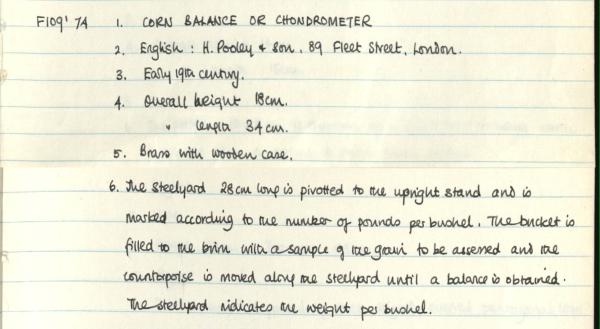 F109' 74 1. CORN BALANCE OR CHONDROMETER
2. English : H. Pooley & Son, 89 Fleet Street, London.
3. Early 19th century.
4. Overall height 18cm.
" length 34cm.
5. Brass with wooden case.
6. The steelyard 28cm long is pivotted to the upright stand and is
marked according to the number of pounds per bushel. The bucket is
filled to the brim with a sample of the grain to be assessed and the
counterpoise is moved along the steelyard until a balance is obtained.
The steelyard indicates the weight per bushel.